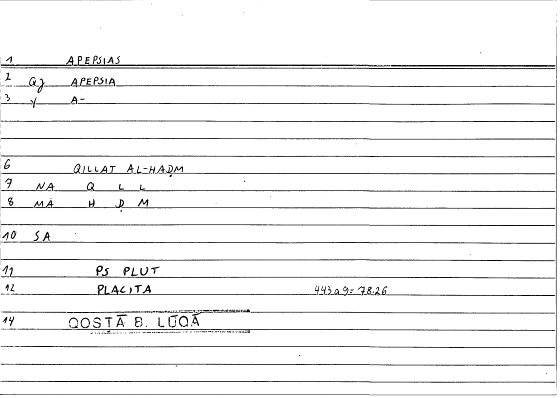 1 APEPSIAS
2 Qg APEPSIA
3 y A-
6 QILLAT AL-HAḌM
7 NA Q L L
8 MA H Ḍ M
10 SA
11 PS PLUT
12 PLACITA 443a9= 78.26
14 QOSṬĀ B. LŪQĀ